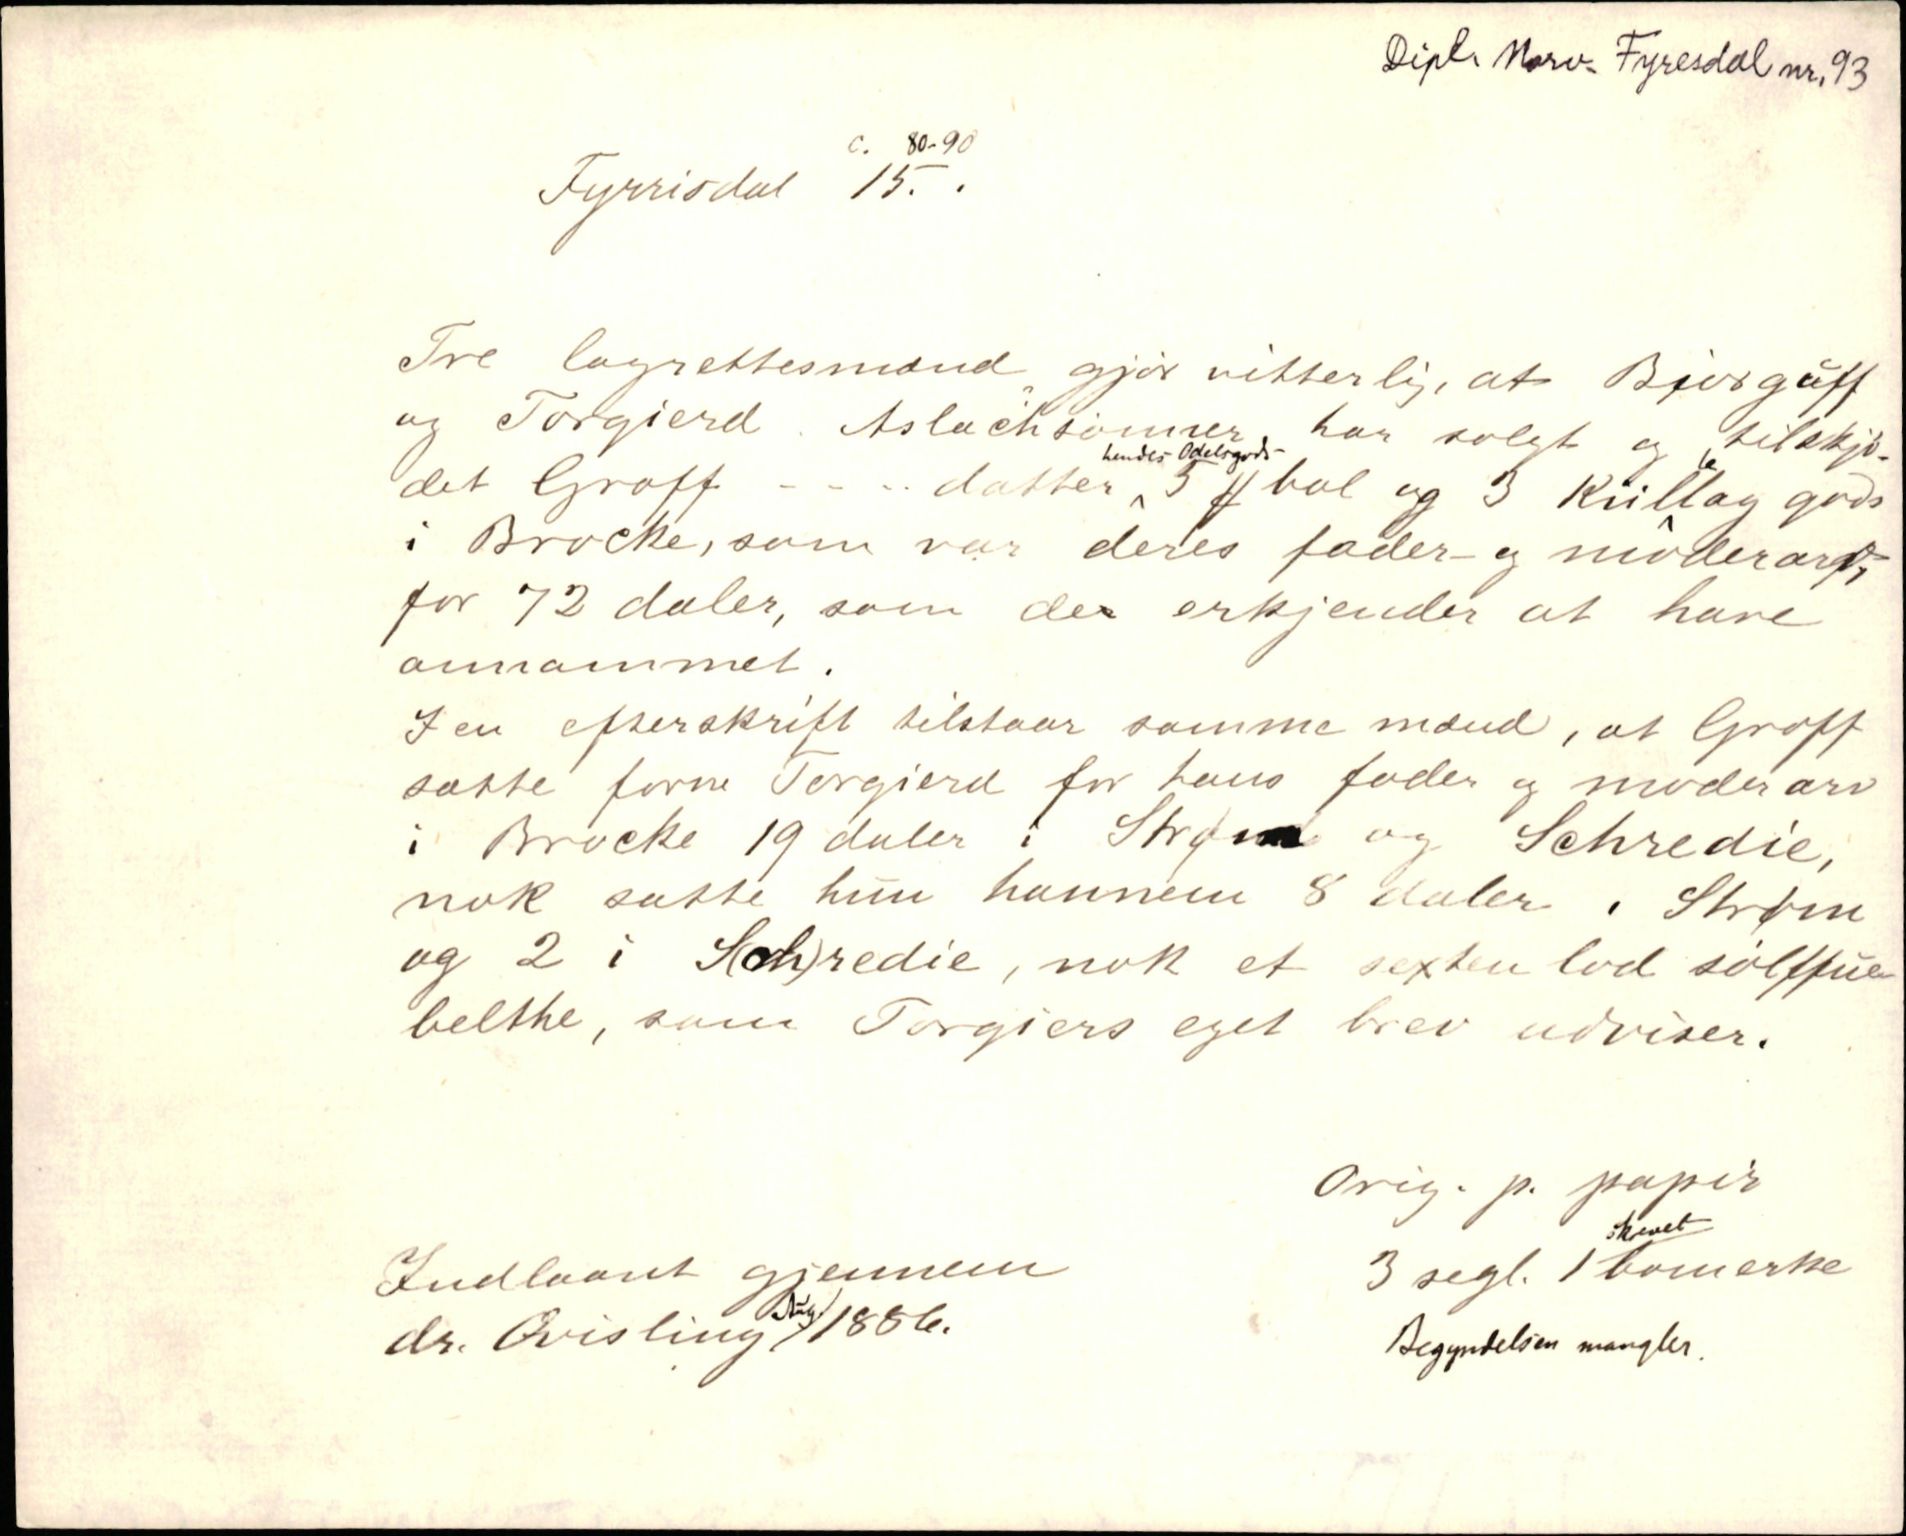 Dipl. Norv. Fyresdal nr. 93
c. 80-90
Fyrrisdal 15. .
Tre lagrettesmænd gjör vitterlig, at Biørguff
og Torgierd Aslachsönner har solgt og tilskjö-
hendes Odelsgods
det Groff - - - - datter 5 ff bol og 3 Kúillag gods
i Brocke, som var deres fader- og möderarf,
for 72 daler, som de erkjender at have
annammet.
I en efterskrift tilstaar samme mænd, at Groff
satte forne Torgierd for hans fader og moderarv
i Brocke 19 daler i Strøm og Schredie,
nok satte hun hannem 8 daler i Strøm
og 2 i S(ch)redie, nok et sexten lod sölffue
belthe, som Torgiers eget brev udviser.
Orig. p. papir
skrevet
3 segl. 1 bomerke
Begyndelsen mangler.
Indlaant gjennem
dr. Qvisling Aug. 1886.